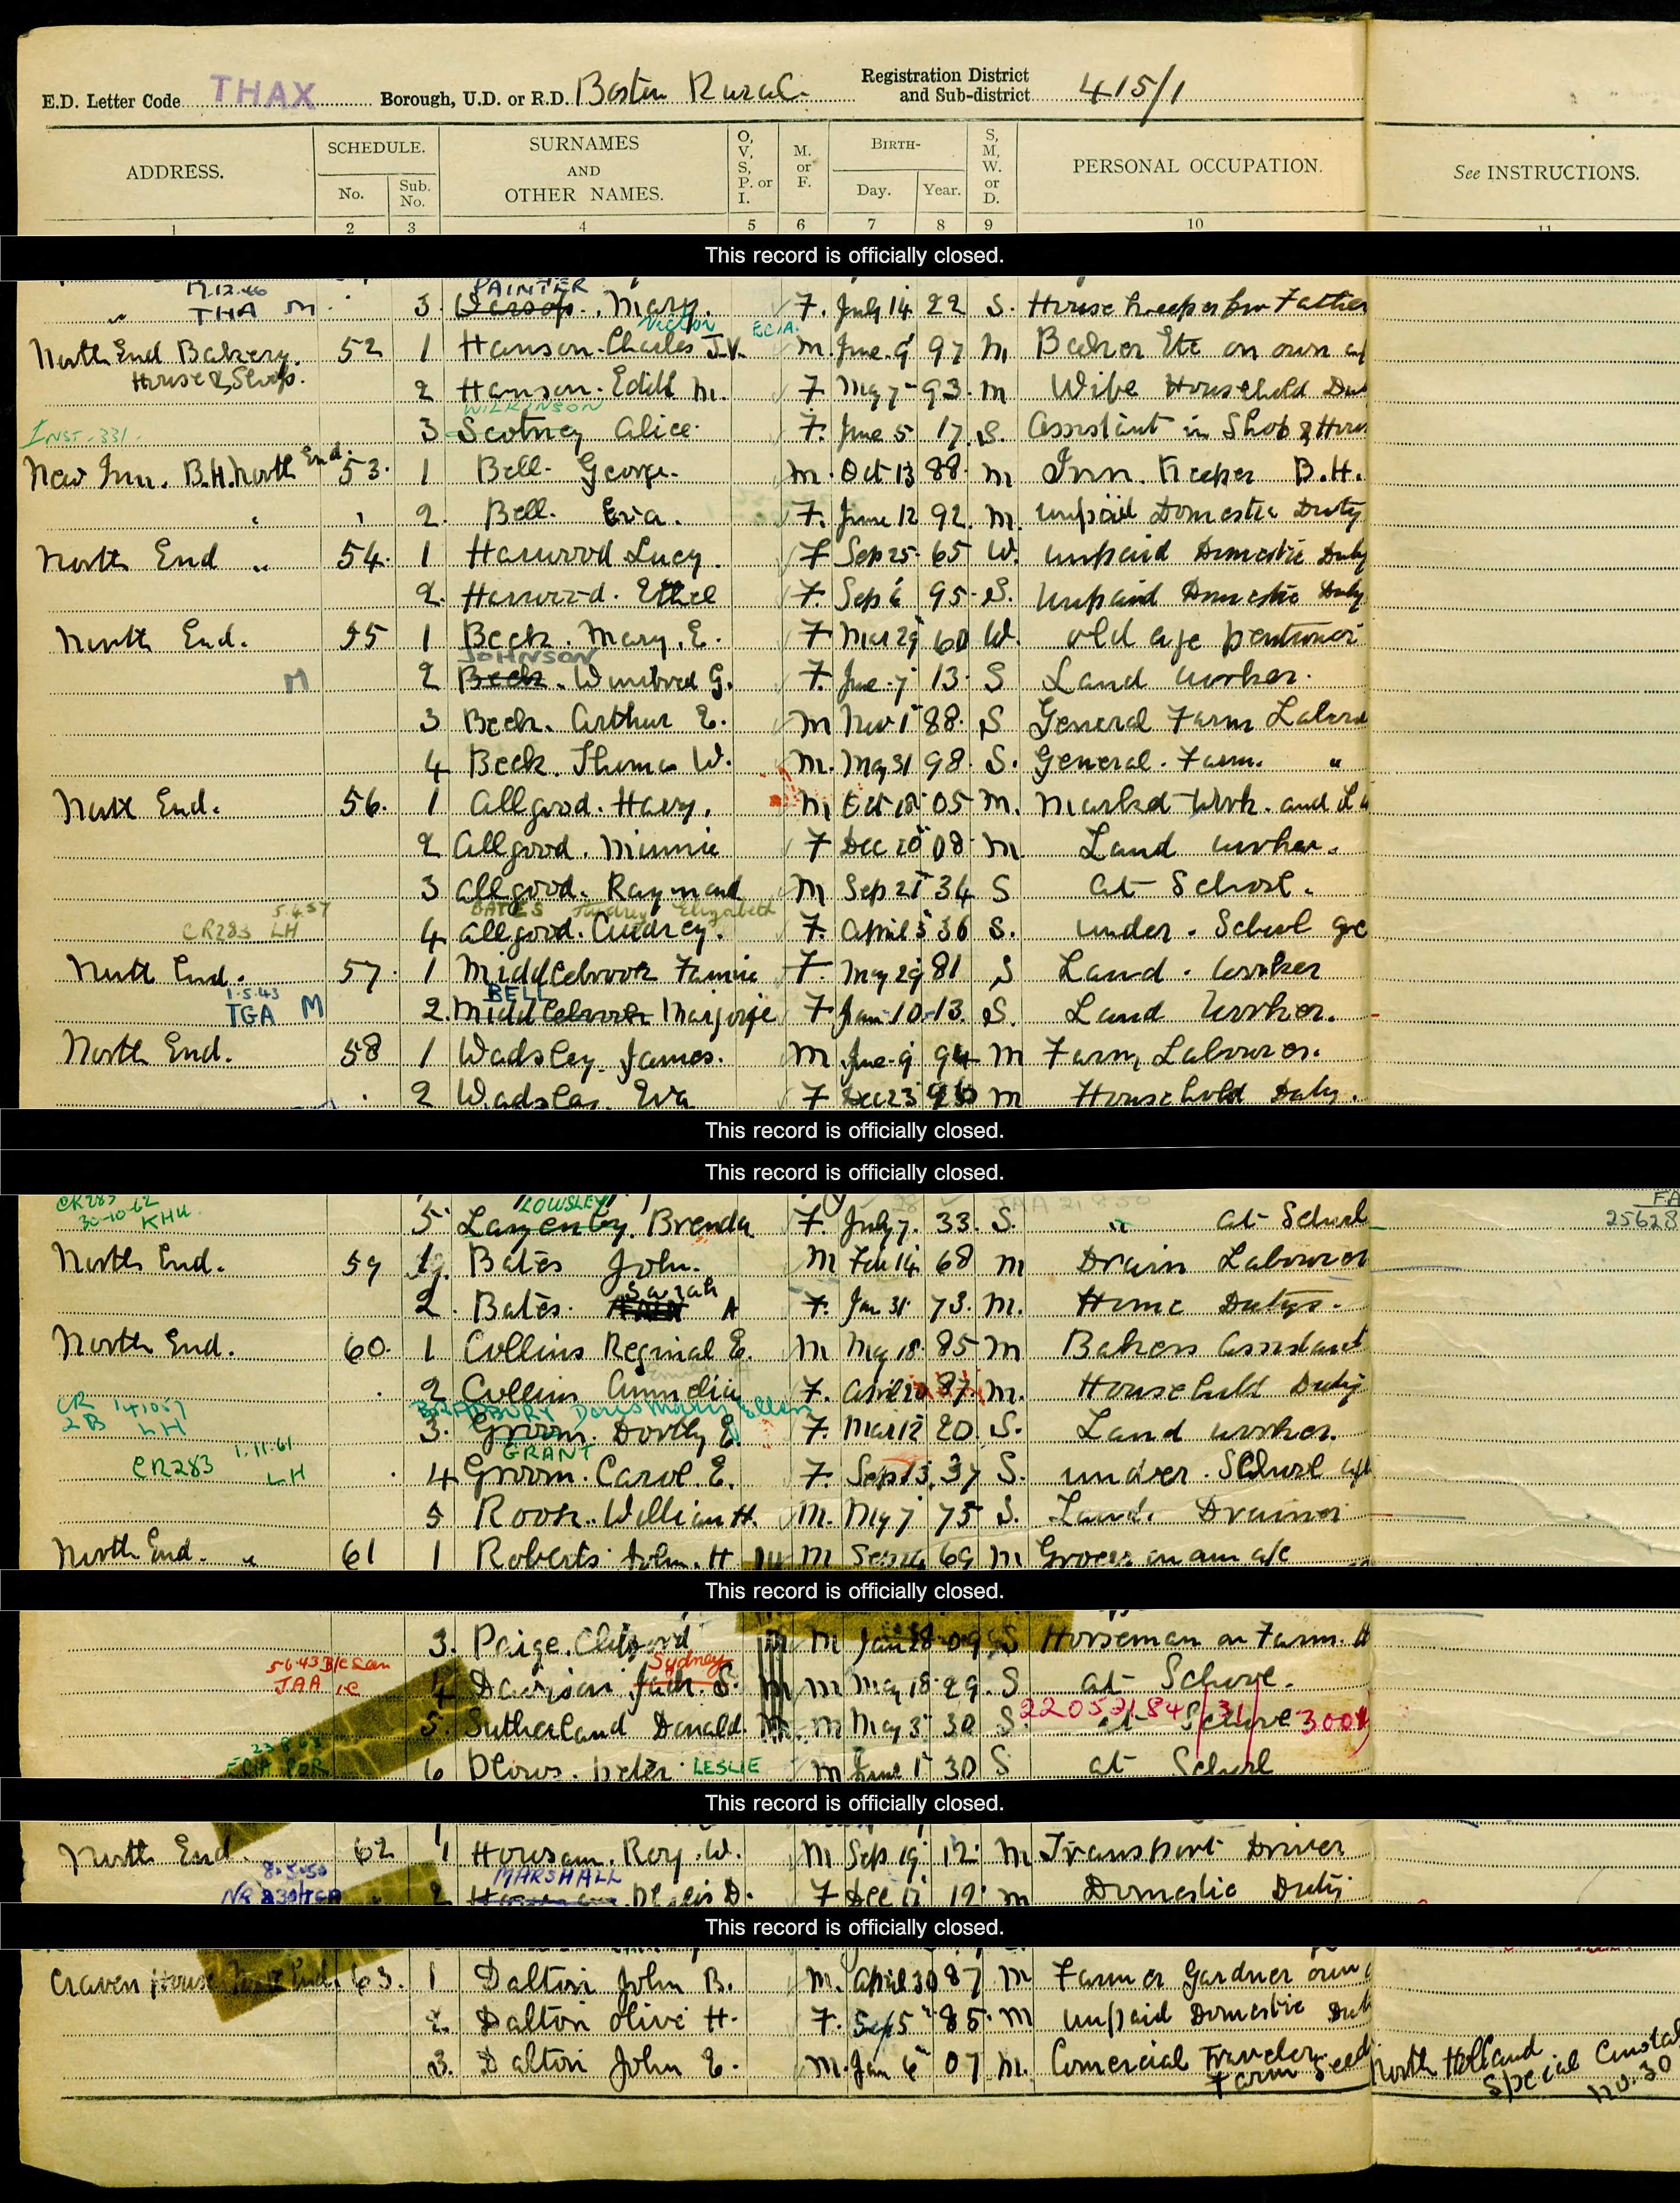 E.D. Letter Code THAX Borough, U.D. or R.D. Boston Rural Registration District and Sub-district 415/1
ADDRESS. SCHEDULE. No. Sub. No. SURNAMES AND OTHER NAMES. O, V, S, P. or I. M. or F. BIRTH- Day. Year. S, M, W. or D. PERSONAL OCCUPATION. See INSTRUCTIONS.
1 2 3 4 5 6 7 8 9 10 11
This record is officially closed.
17.12.46 PAINTER
" THA M 3. Mary. F. July 14 22 S. House keeper for Father
Victor ECIA.
North End Bakery. 52 1 Hanson. Charles J.V. M. June 9 97 M Baker Etc on own
House & Shop. 2 Hanson. Edith M. F May 7 93. M Wife Household
WILKINSON
INST. 331. 3 Scotney Alice. F. June 5 17. S. Assistant in Shop &
New Inn. B.H. North End. 53. 1 Bell. George. M. Oct 13 88. M Inn. Keeper B.H.
2. Bell. Eva. F. June 12 92. M. unpaid Domestic Duty
North End " 54. 1 Harwood Lucy. F Sep 25 65 W. unpaid Domestic Duty
2. Harwood. Ethel F. Sep 6 95. S. Unpaid Domestic Duty
North End. 55 1 Beck. Mary. E. F Mar 29 60 W. old age pentioner
JOHNSON
M 2 Beck. Winifred G. F. June 7 13. S Land worker.
3 Beck. Arthur E. M Nov 1st 88. S General Farm
4 Beck. Thomas W. M. May 31 98. S. General. Farm. "
North End. 56. 1 Allgood. Harry. M Oct 18 05 M. Market Work. and
2 Allgood. Minnie F Dec 20 08 M Land worker.
3 Allgood. Raymond M Sep 21 34 S at School.
5.4.57 BATES Audrey Elizabeth
CR283 LH 4 Allgood. Audrey. F. April 5 36 S. under. School
North End. 57. 1 Middlebrook Fannie F. May 29 81 S Land. worker
1.5.43 BELL
TGA M 2. Middlebrook Marjorie F Jan 10 13. S. Land Worker.
North End. 58 1 Wadsley. James. M June 9 94 M Farm Labourer.
2 Wadsley. Eva F Dec 23 M Household Duty.
This record is officially closed.
This record is officially closed.
CR283 30-10-62 KHU LOWSLEY JAA 21 8 50
5 Lazenby. Brenda F. July 7. 33. S. " at School 25628
North End. 59 1. Bates John. M Feb 14 68 M Drain Labourer
Sarah
2. Bates. A F. Jan. 31 73. M. Home Dutys.
North End. 60. 1 Collins Reginal E. M May 18 85 M Bakers assistant
2 Collins F. April 20 87. M. Household Duty
CR 141057 BRADBURY Doris Mary Ellen
2B LH 3. Groom. Dorthy E. F. Mar 12 20. S. Land worker.
1.11.61 GRANT
CR283 LH 4 Groom. Carol. E. F. Sep 13. 37 S. under. School
5 Rook. William H. M. May 7 75 S. Land. Drainer
North End. " 61 1 Roberts John. H M Sep 69 M Grocer on own a/c
This record is officially closed.
3. Paige. Clifford M Jan 28 09 S Horseman on Farm.
Sydney
JAA 4 Davison Jack. S. M May 18 29. S at School.
22052184/31/3001
5. Sutherland Donald. M May 3 30 S. at School
6 Blows. Peter. LESLIE M June 1st 30 S at School
This record is officially closed.
North End. 62 1 Howsam. Roy. W. M Sep 19 12 M Transport Driver
8.5.50 MARSHALL
2 D. F Dec 12 M Domestic Duty
This record is officially closed.
Craven House North End. 63. 1 Dalton John B. M. April 30 87 M Farmer Gardner own
2. Dalton Olive H. F. Sep 5 85. M unpaid Domestic
3. Dalton John E. M. Jan 6 07 M. Comercial Traveler. Farm Seed North Holland Special No. 30